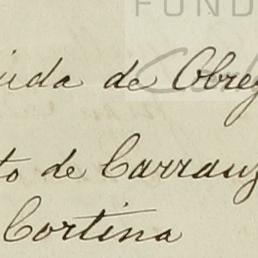 FUND
üda de Obreg
to de Carranz
Cortina